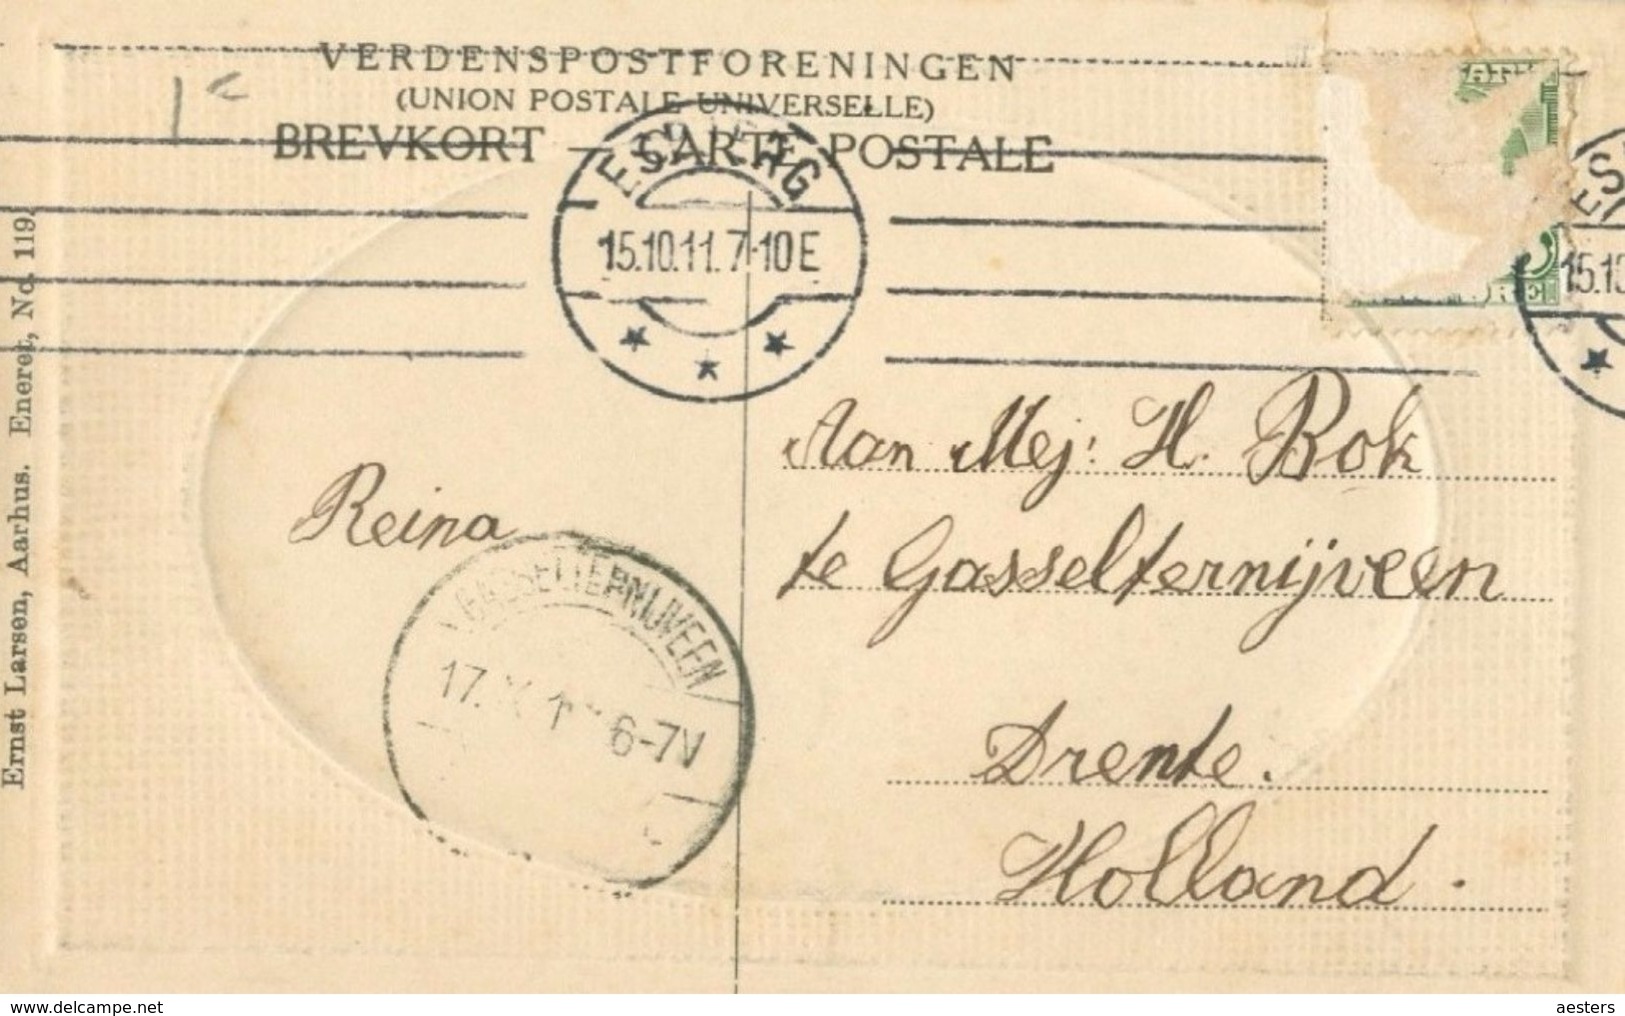 VERDENSPOSTFORENINGEN
(UNION POSTALE UNIVERSELLE)
BREVKORT — CARTE POSTALE
ESBJERG
15.10.11. 7-10E
Aan Mej: H. Bok
te Gasselternijveen
Drente.
Holland.
Reina
GASSELTERNIJVEEN
17. X 1 6-7V
Ernst Larsen, Aarhus. Eneret, No. 119.
ES
15.10
https://www.delcampe.net
aesters